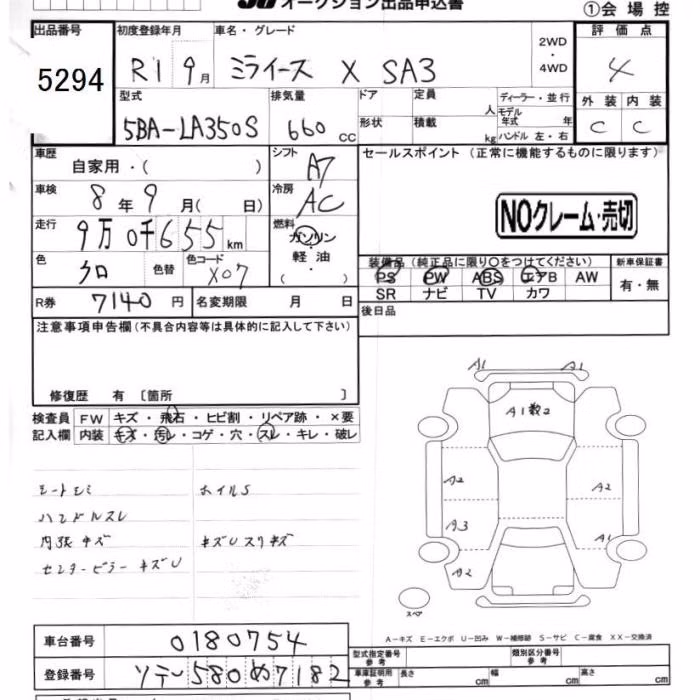 オークション出品申込書
①会場控
出品番号 初度登録年月 車名・グレード 2WD・4WD 評価点
5294 R1 9月 ミライース X SA3 4
型式 排気量 ドア 定員 人 ディーラー・並行 外装 内装
5BA-LA350S 660cc 形状 積載 kg モデル年式 年 ハンドル 左・右 C C
車歴 自家用・( ) シフト A7 セールスポイント (正常に機能するものに限ります)
車検 8年9月( 日) 冷房 AC
NOクレーム・売切
走行 9万0千655km 燃料 ガソリン・軽油・( )
色 クロ 色替 色コード X07
装備品(純正品に限り○をつけてください) 新車保証書
PS PW ABS エアB AW 有・無
SR ナビ TV カワ
R券 7140円 名変期限 月 日 後日品
注意事項申告欄(不具合内容等は具体的に記入して下さい)
修復歴 有 〔箇所 〕
検査員 FW キズ・飛石・ヒビ割・リペア跡・×要
記入欄 内装 キズ・汚レ・コゲ・穴・スレ・キレ・破レ
A1 A1
A1数2
シートシミ ホイルS
ハンドルスレ
内張キズ キズUスリキズ
センターピラーキズU
A2 A2
A3 A1
A2
スペア
A-キズ E-エクボ U-凹み W-補修跡 S-サビ C-腐食 XX-交換済
車台番号 0180754
型式指定番号 参考 類別区分番号 参考
登録番号 ソデ 580 め7182
車庫証明用 参考 長さ cm 幅 cm 高さ cm